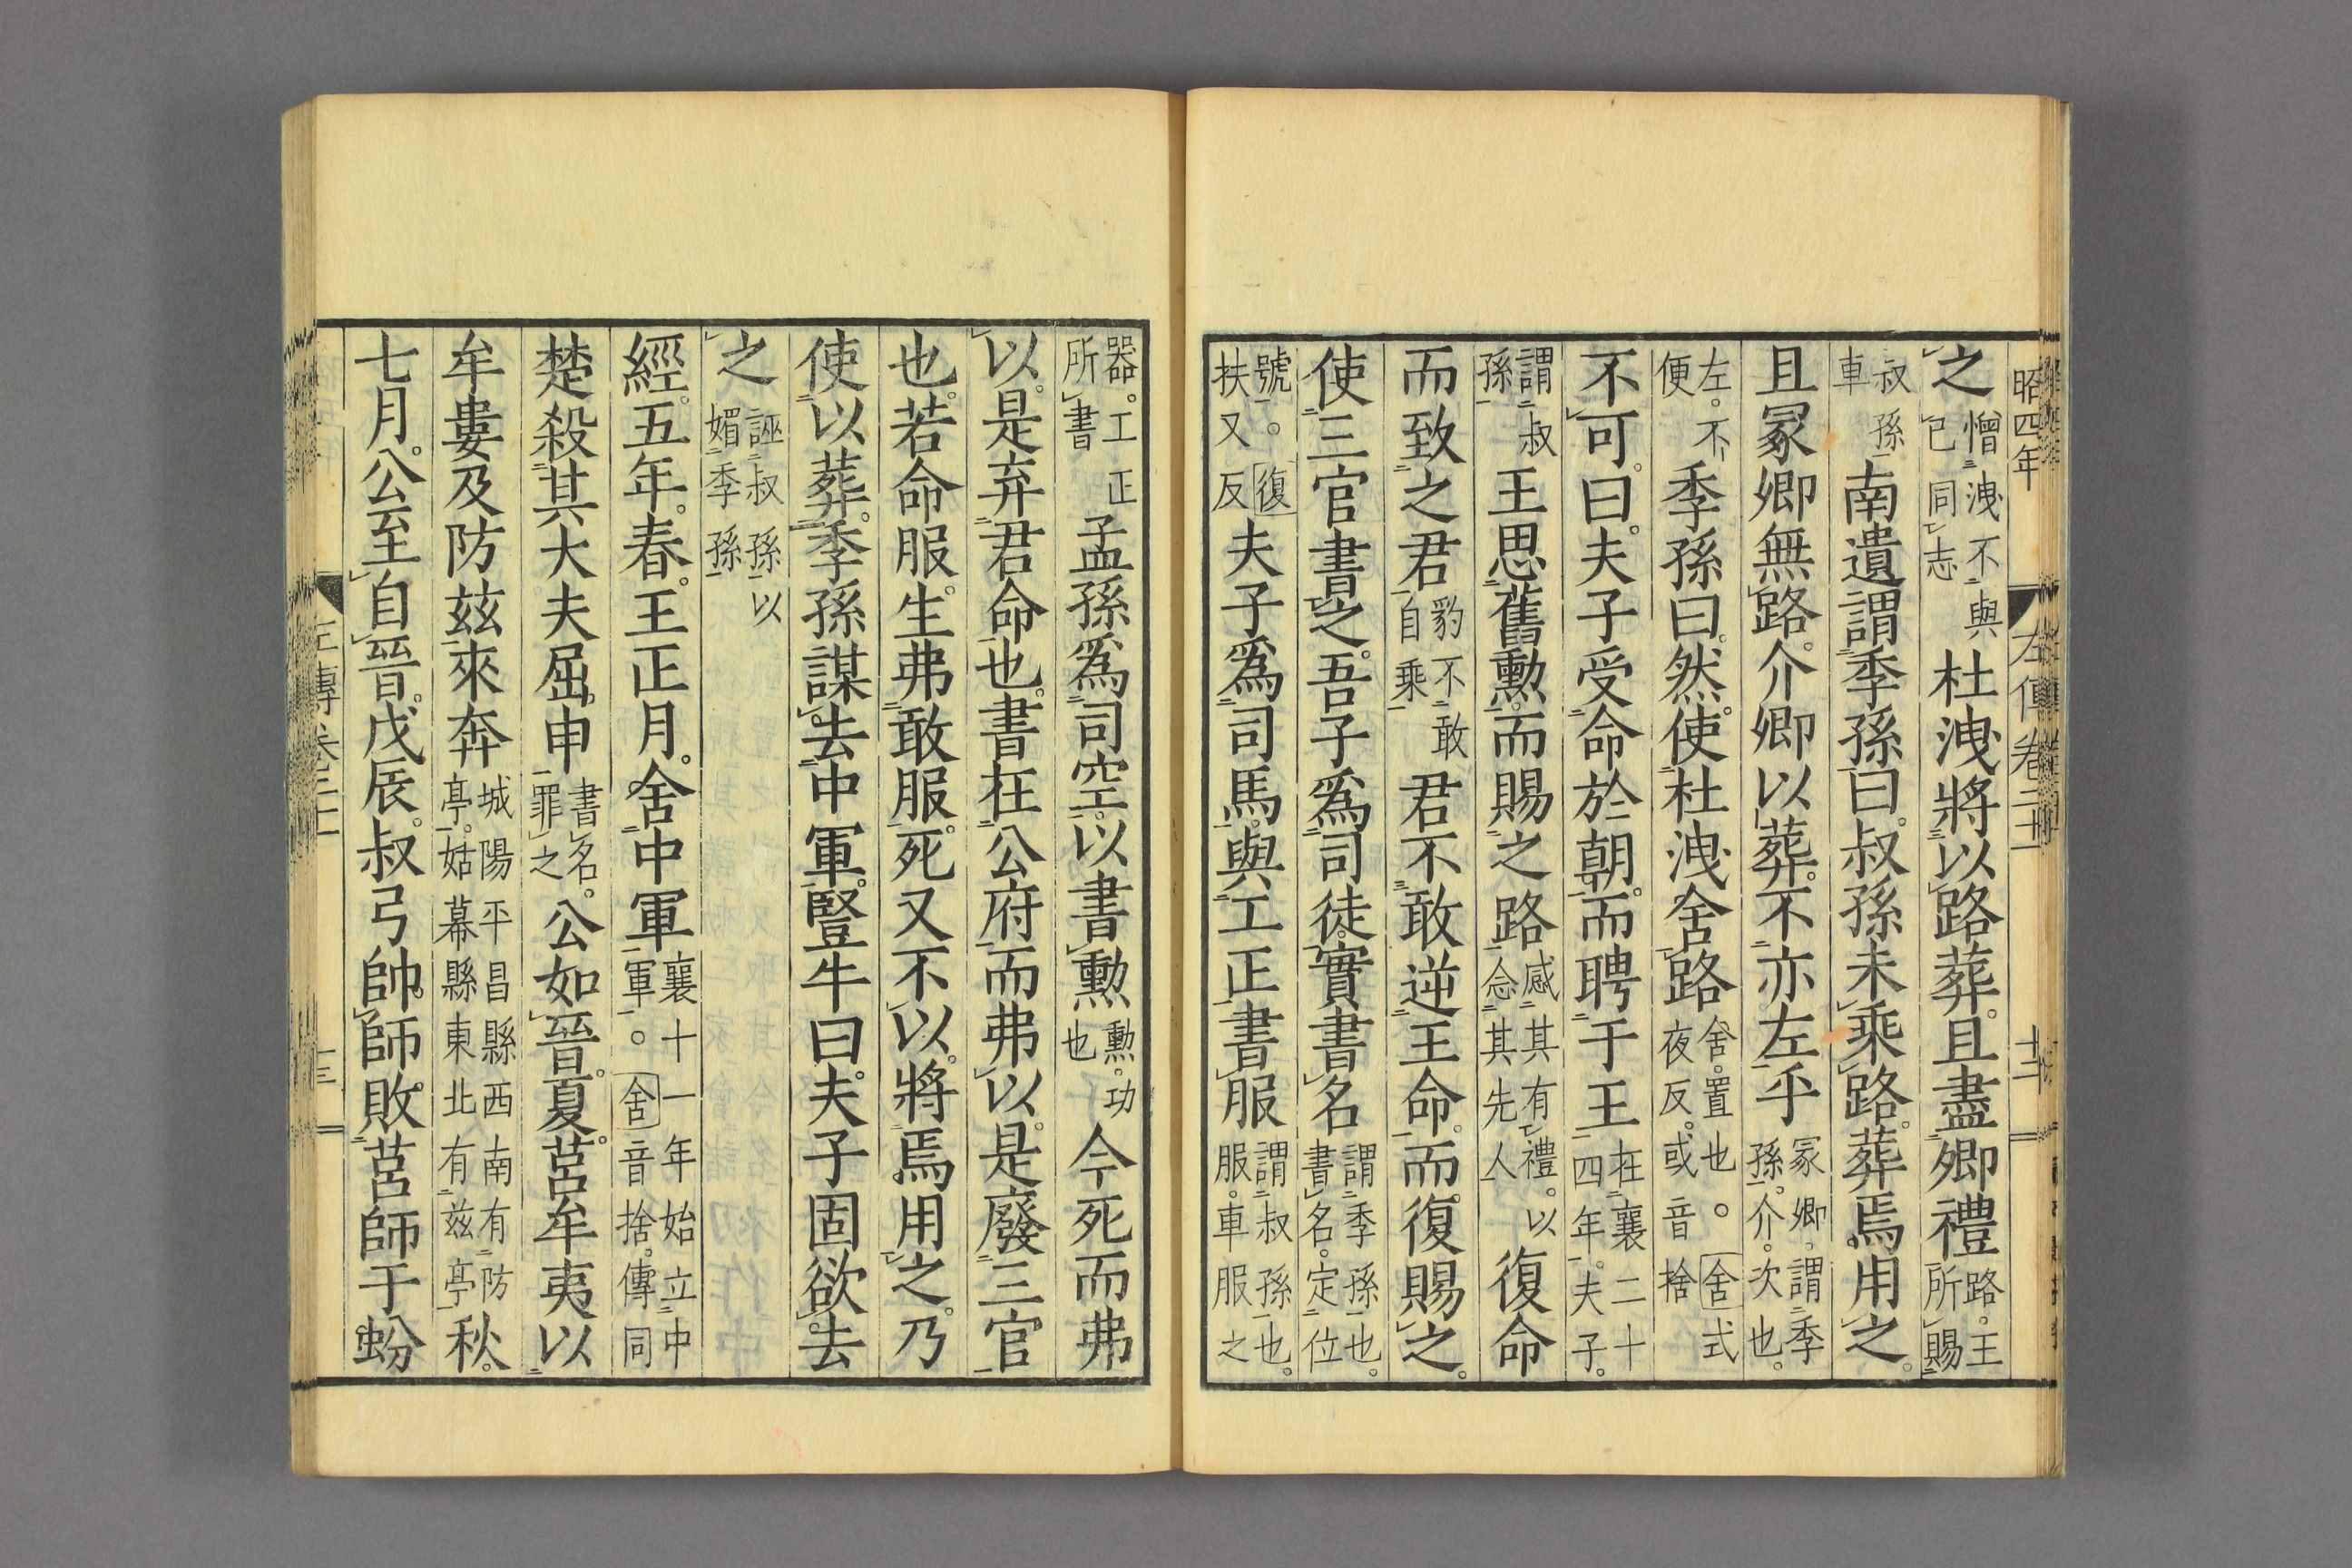 昭四年 左傳卷二十一 十二
之憎洩不與己同志杜洩將以路葬。且盡卿禮路。王所賜
叔孫車南遺謂季孫曰。叔孫未乘路。葬焉用之。
且冢卿無路。介卿以葬。不亦左乎冢卿。謂季孫。介。次也。
左。不便季孫曰。然。使杜洩舍路舍。置也。舍式夜反。或音捨
不可。曰。夫子受命於朝。而聘于王在襄二十四年。夫子。
謂叔孫王思舊勲。而賜之路感其有禮。以念其先人復命
而致之君豹不敢自乘君不敢逆王命。而復賜之。
使三官書之。吾子爲司徒。實書名謂季孫也。書名。定位
號。復扶又反夫子爲司馬。與工正書服謂叔孫也。服。車服之
器。工正所書孟孫爲司空。以書勲勲。功也今死而弗
以。是弃君命也。書在公府而弗以。是廢三官
也。若命服。生弗敢服。死又不以。將焉用之。乃
使以葬。季孫謀去中軍。豎牛曰。夫子固欲去
之誣叔孫以媚季孫
經。五年。春。王正月。舍中軍襄十一年始立中軍。舍音捨。傳同
楚殺其大夫屈申書名。罪之公如晉。夏。莒牟夷以
牟婁及防茲來奔城陽平昌縣西南有防亭。姑幕縣東北有茲亭秋。
七月。公至自晉。戊辰。叔弓帥師敗莒師于蚡